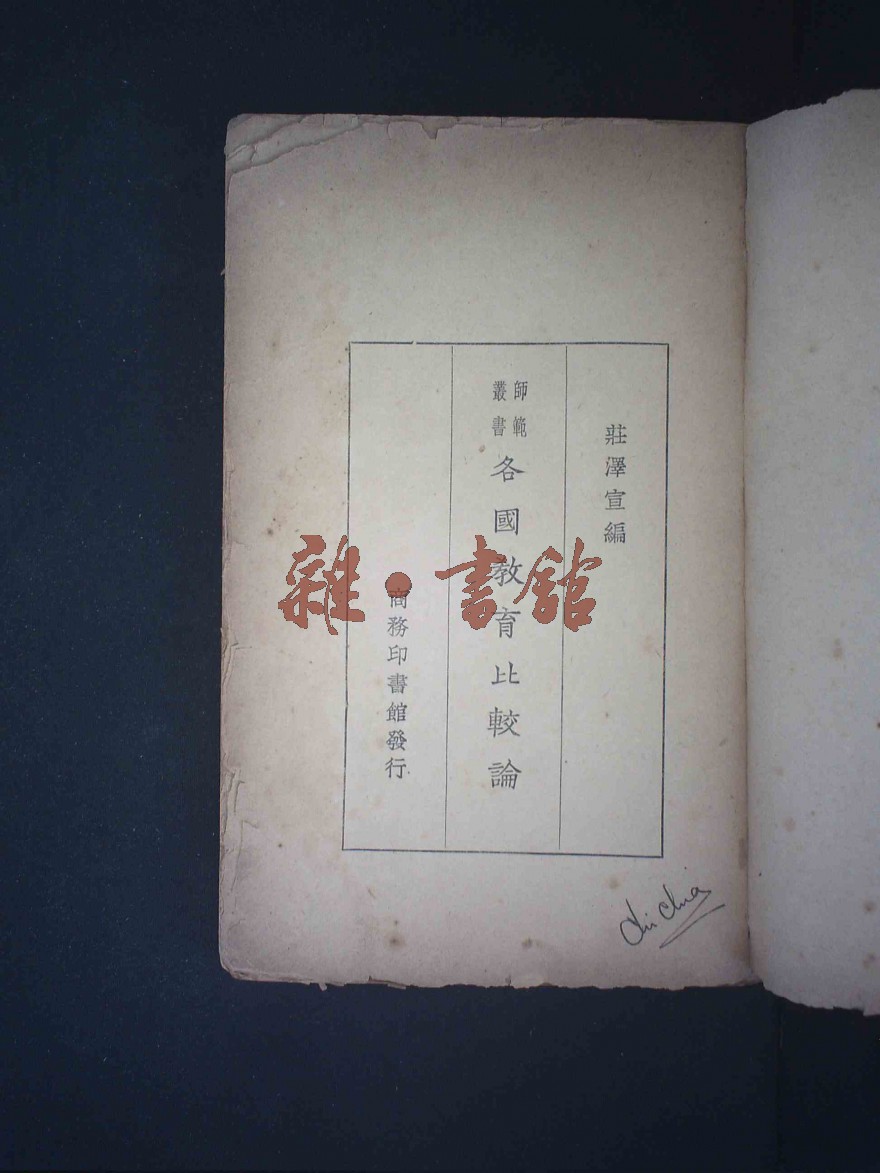 莊澤宣編
師範
叢書
各國教育比較論
商務印書館發行
雜·書館